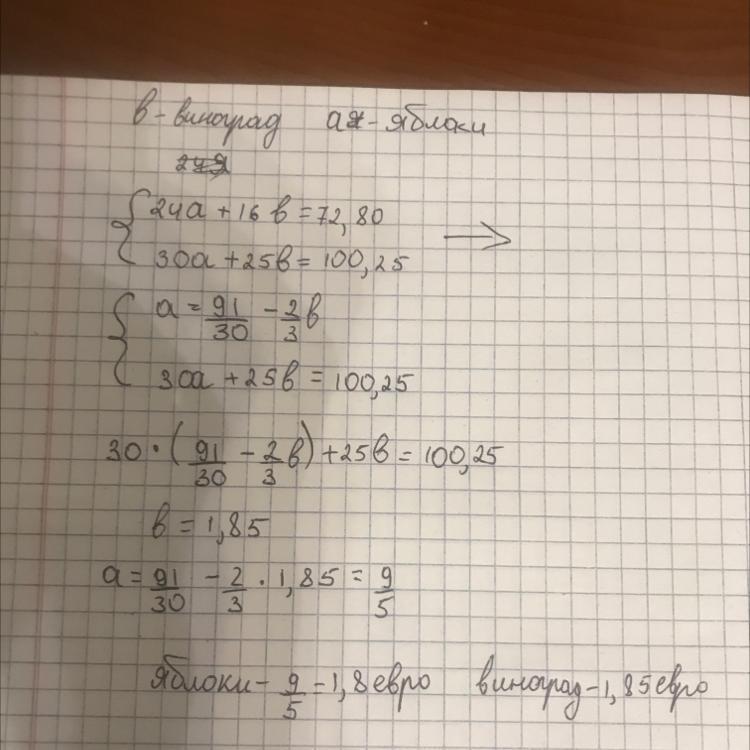 в - виноград а - яблоки
{ 24а + 16в = 72,80 →
30а + 25в = 100,25
{ а = 91/30 - 2/3 в
30а + 25в = 100,25
30 · (91/30 - 2/3 в) + 25в = 100,25
в = 1,85
а = 91/30 - 2/3 · 1,85 = 9/5
яблоки - 9/5 = 1,8 евро виноград - 1,85 евро